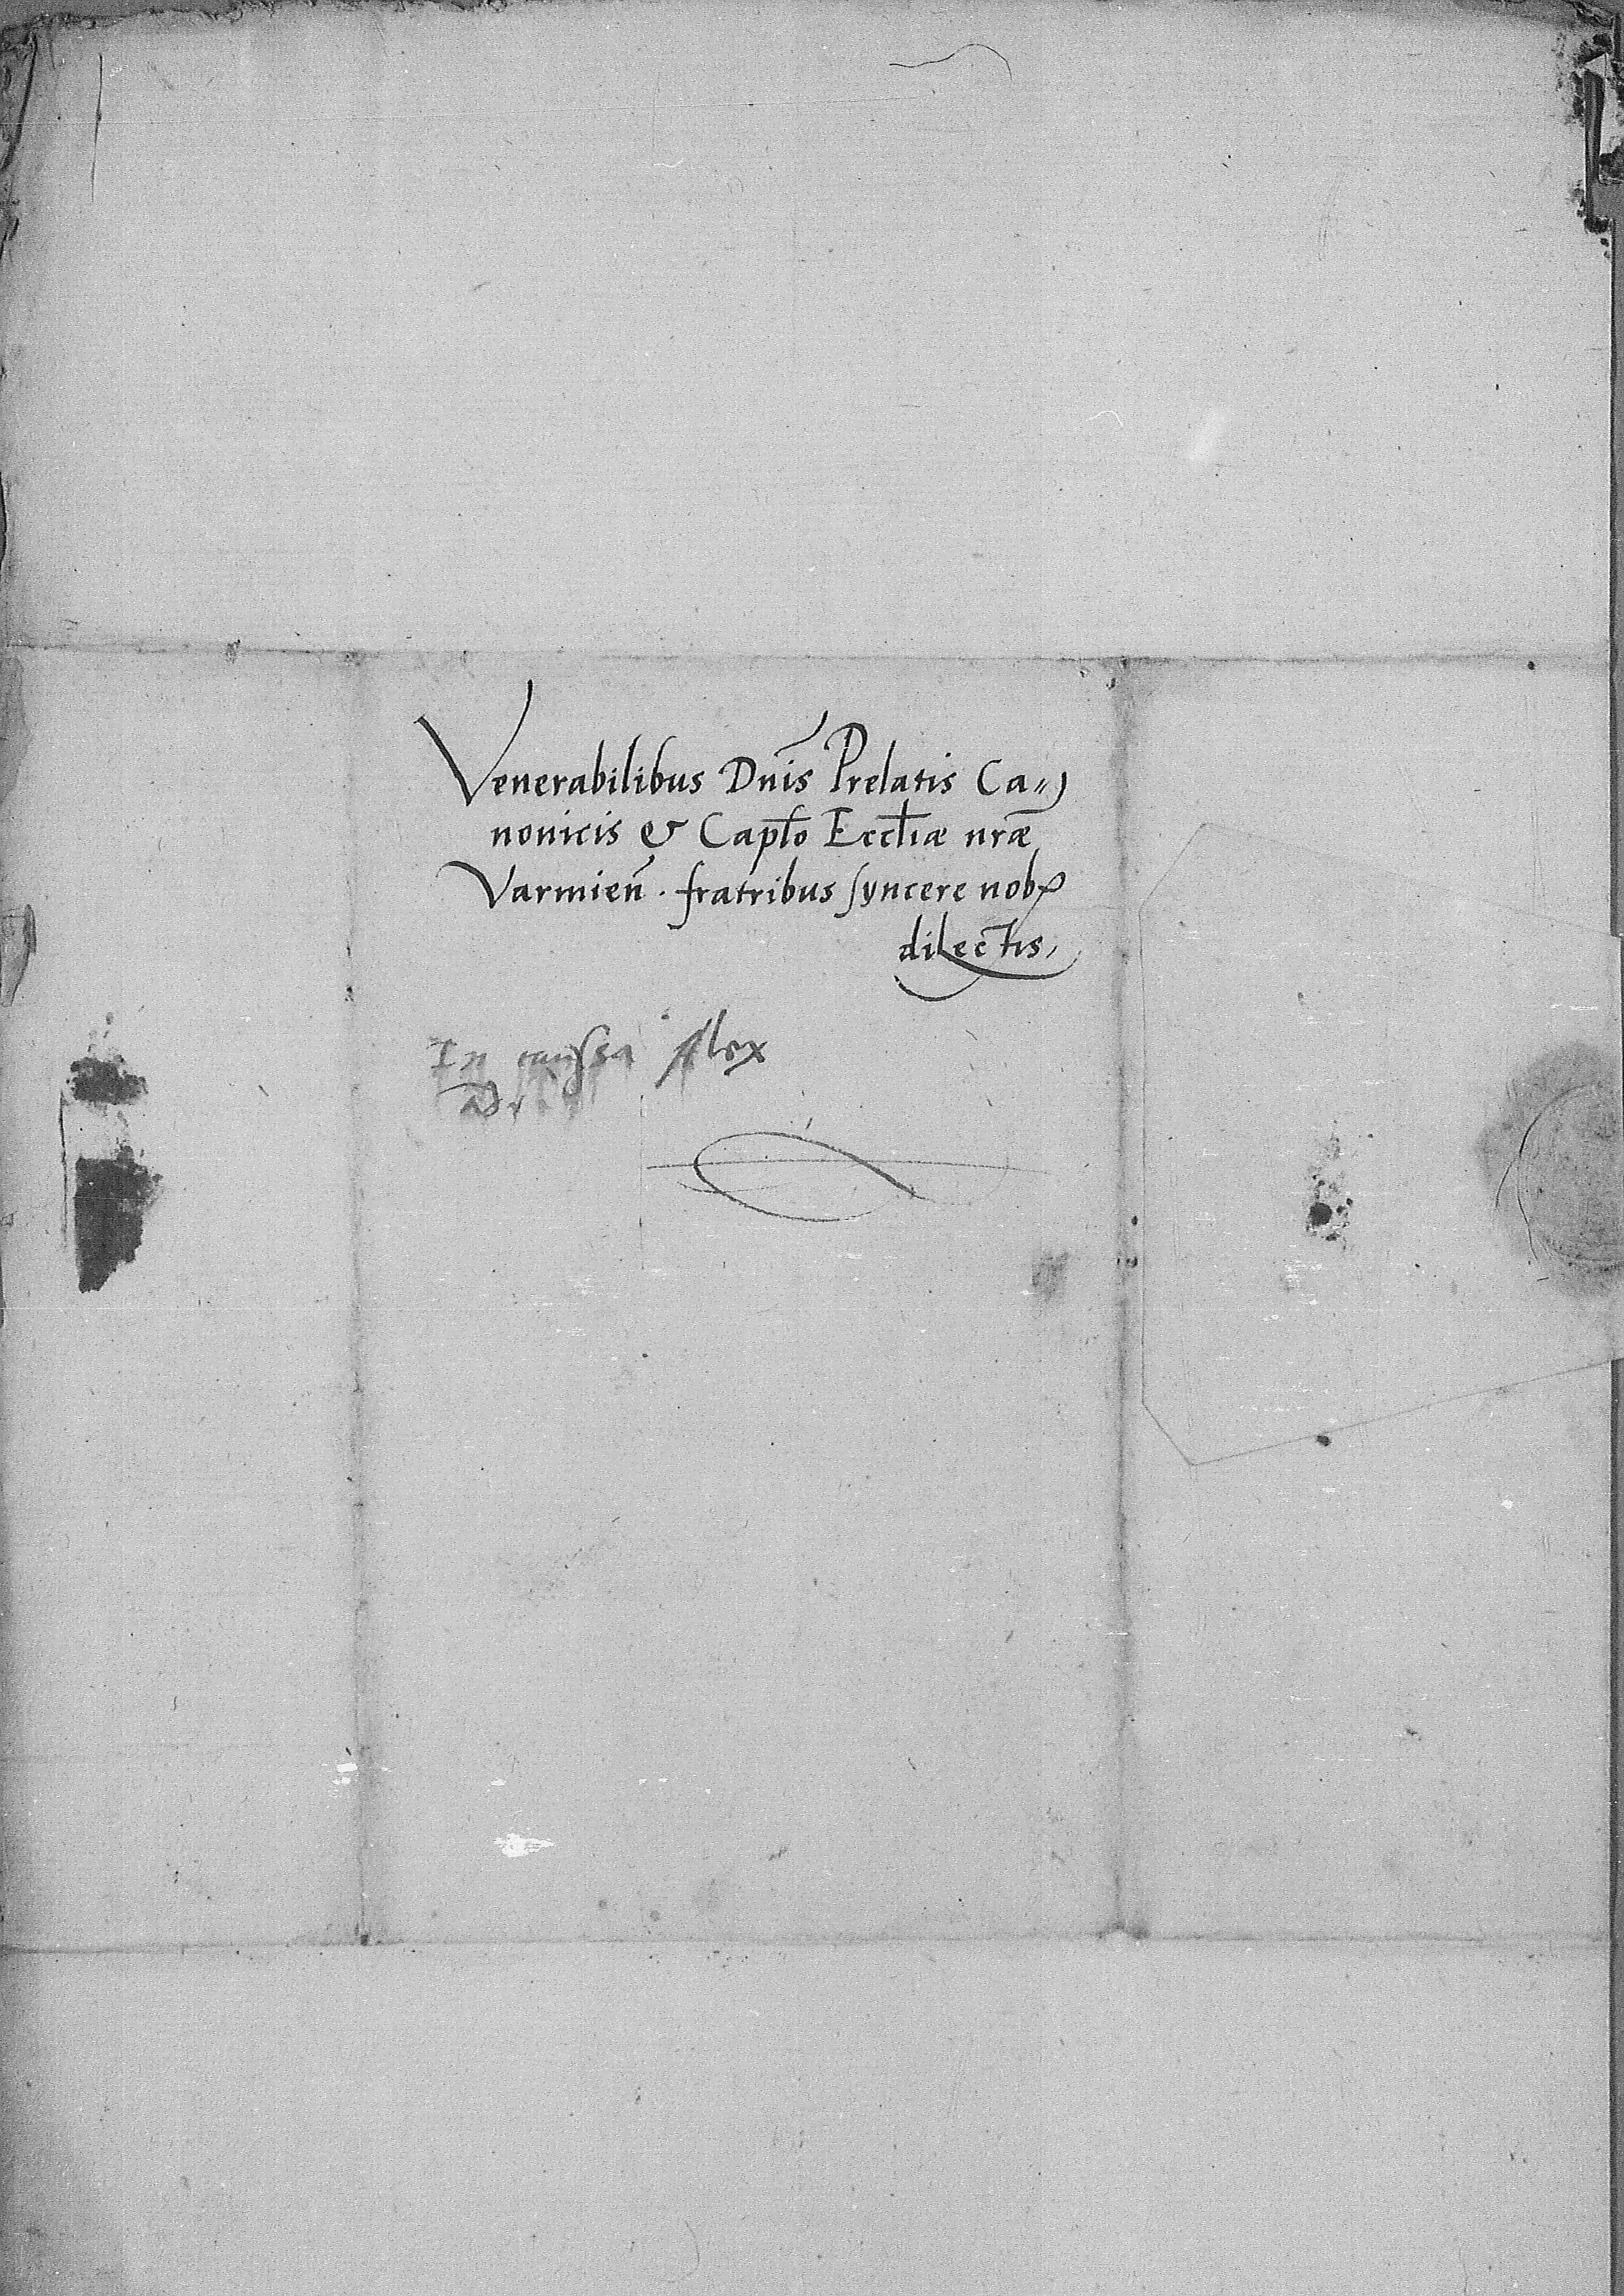 Venerabilibus Dnis̄ Prelatis Ca-
nonicis & Capłto Eccłiae nrāe
Varmien̄. fratribus syncere nob
dilectis,
In caussa Alex